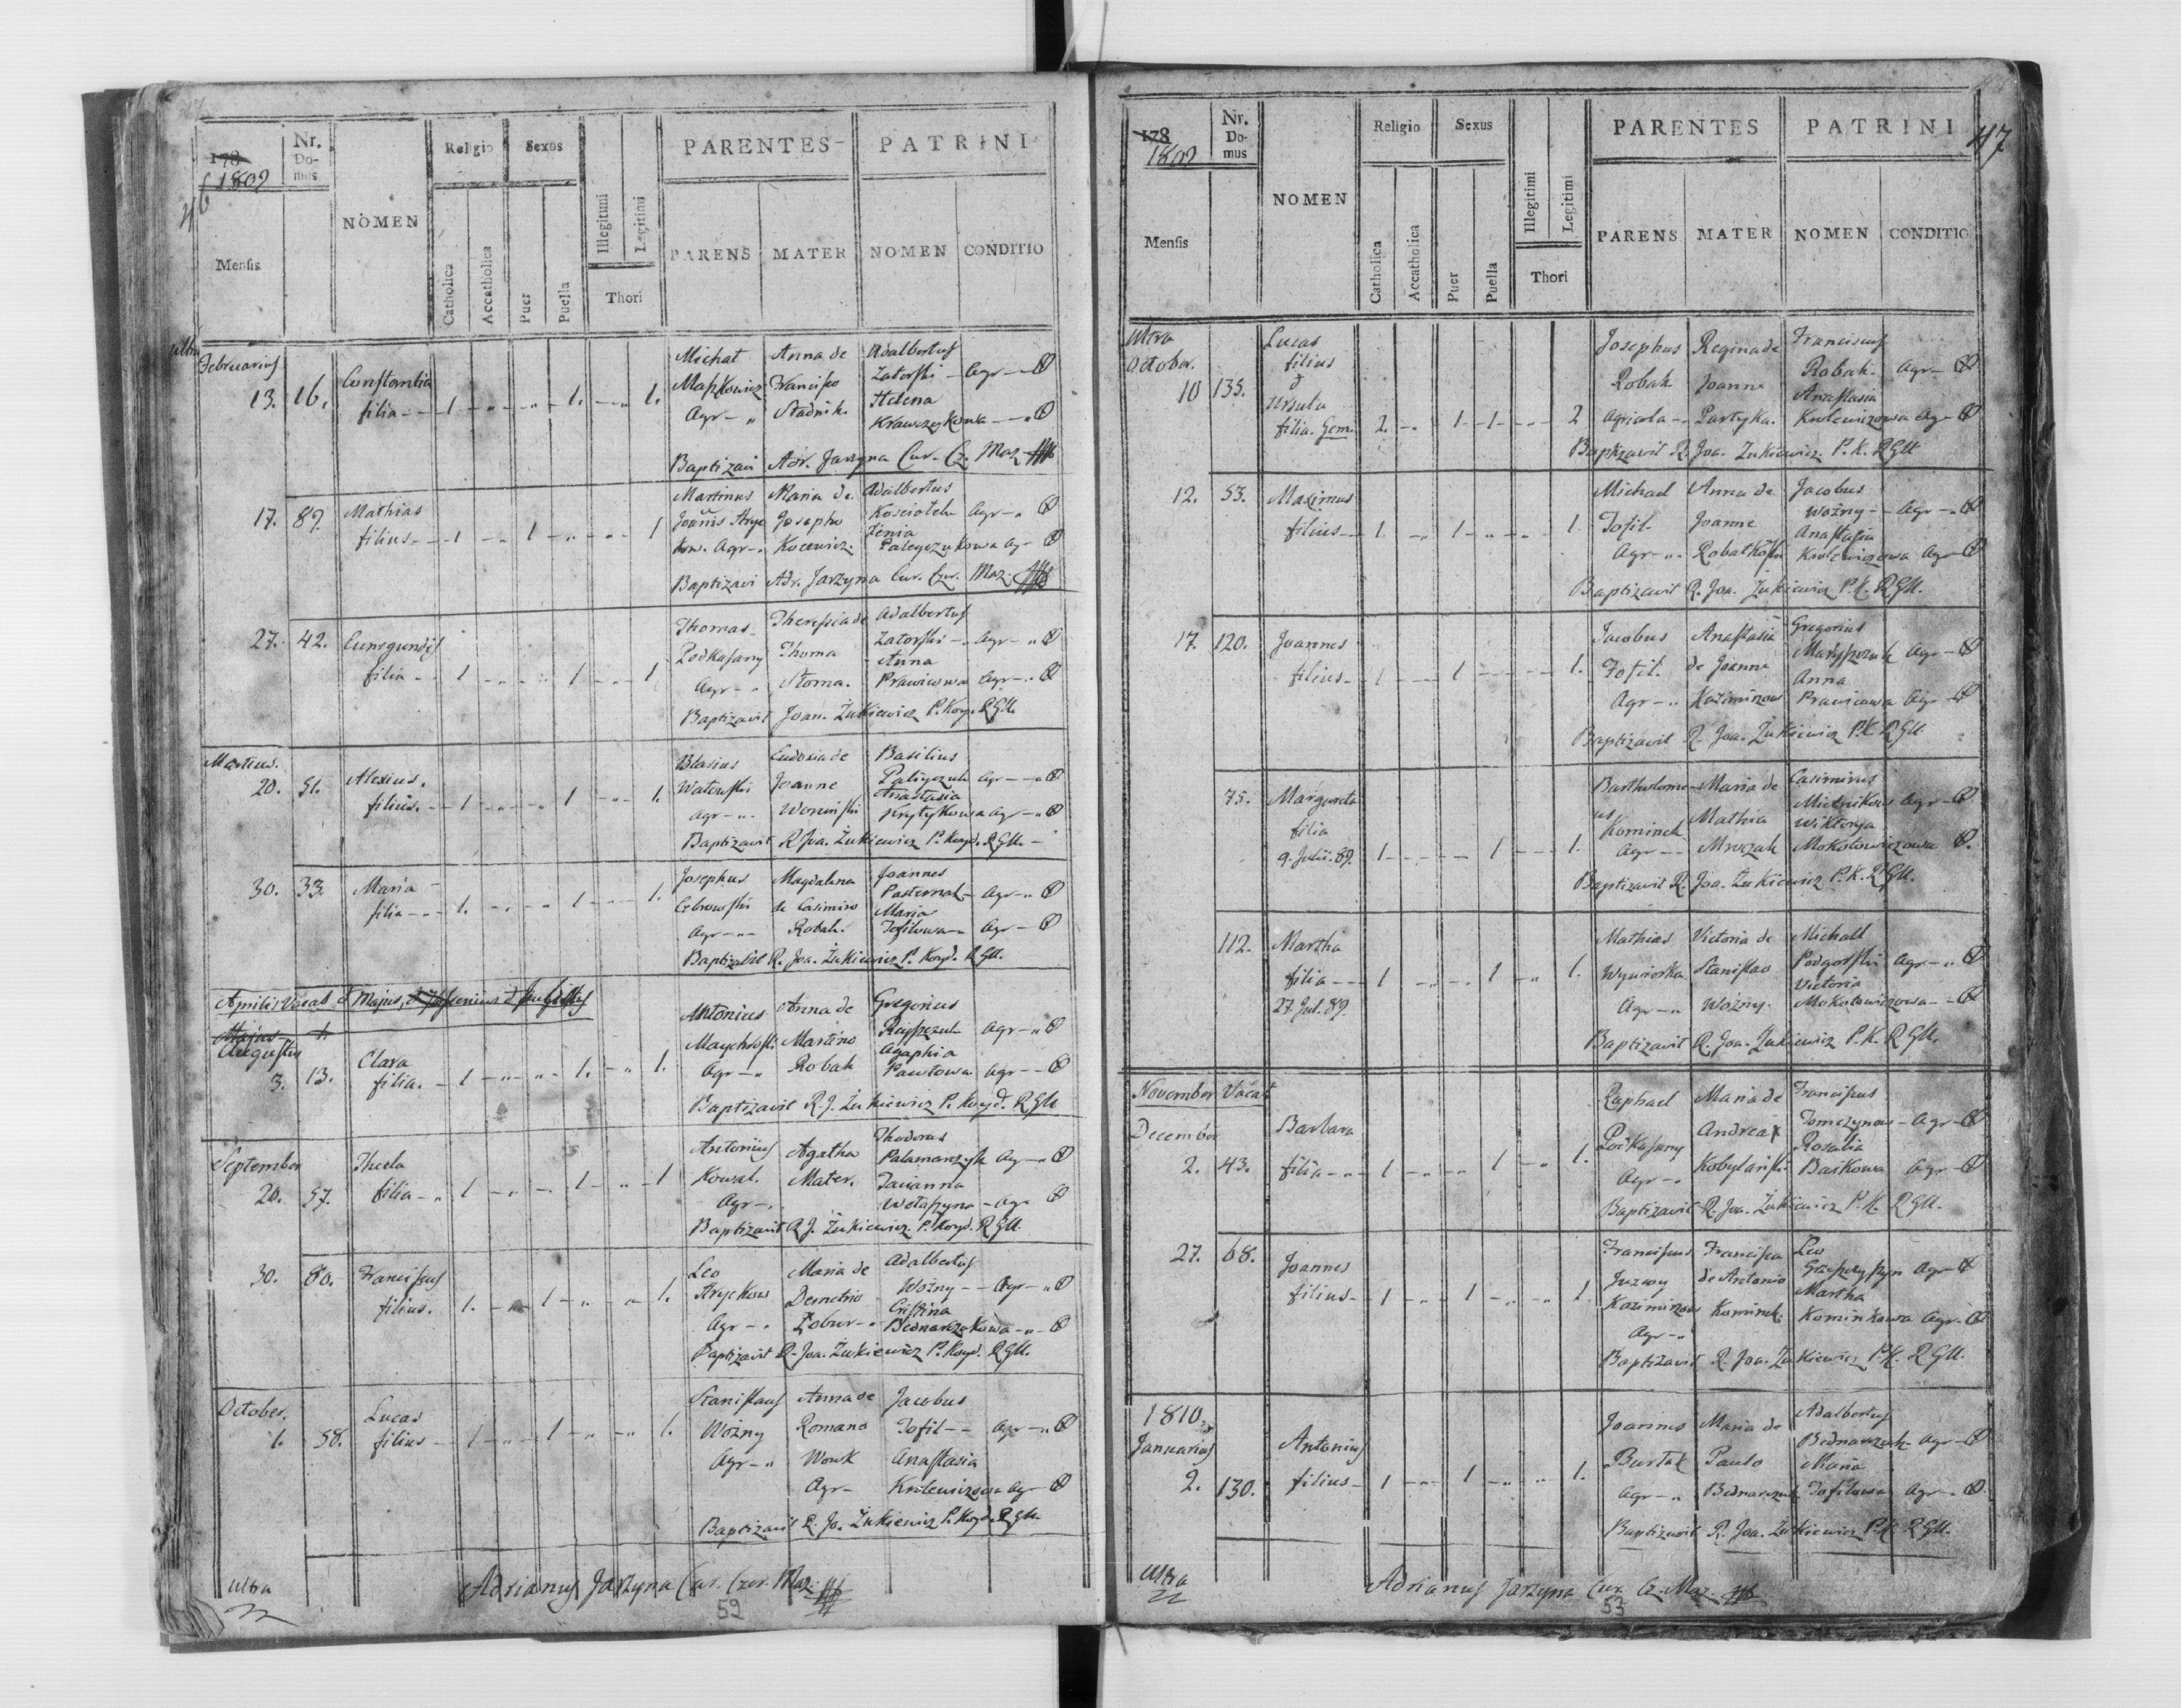 46
178
1809
Nr. Domus
NOMEN
Religio
Sexus
Illegitimi
Legitimi
PARENTES
PATRINI
Mensis
Catholica
Accatholica
Puer
Puella
Thori
PARENS
MATER
NOMEN
CONDITIO
ultra
Februarius
13. 16. Constantia Michał Anna de Adalbertus
filia 1 1. 1. Francisco Zatorski Agr
Agr Stadnik Helena
Krawczykowa
Baptizavi Adr. Jarzyna Cur. Cz. Maz.
17. 89. Mathias Martinus Maria de Adalbertus
filius 1 1 1 Joannis Josepho Agr
Agr Kocewicz
Baptizavi Adr. Jarzyna Cur. Czer. Maz.
27. 42. Cunegundis Thomas Theresia de Adalbertus
filia 1 1 1 Podkasany Thoma Zatorski Agr
Anna
Agr Stoma Prawicowa Agr
Baptizavit Joan. Żukiewicz P. Koryd. RGU.
Martius.
20. 51. Alexius. Blasius Eudoxia de Basilius
filius. 1 1 1. Joanne Agr
Anastasia
Agr Woroniński Agr
Baptizavit R. Joa. Żukiewicz P. Koryd. RGU.
30. 33. Maria Josephus Magdalena Joannes
filia 1. 1 1. de Casimiro Pasternak Agr
Maria
Agr Robak Tofilowa Agr
Baptizavit R. Joa. Żukiewicz P. Koryd. RGU.
Aprilis Vacat & Majus, & Junius & Julius
Majus
Augustus
3. 13. Clara Antonius Anna de Gregorius
filia. 1 1. 1. Martino Agr
Agaphia
Agr Robak Pawłowa Agr
Baptizavit R. J. Żukiewicz P. Koryd. RGU
September
20. 57. Thecla Antonius Agatha Theodorus
filia 1 1 1 Kowal. Mater. Palamarczyk Agr
Agr Agr
Baptizavit R. J. Żukiewicz P. Koryd. RGU.
30. 80. Franciscus Leo Maria de Adalbertus
filius. 1. 1 1. Demetrio Woźny Agr
Cristina
Agr Bednarczukowa
Baptizavit R. Joa. Żukiewicz P. Koryd. RGU.
October.
1. 58. Lucas Stanislaus Anna de Jacobus
filius 1 1 1. Woźny Romano Tofil Agr
Agr Wowk Anastasia
Agr Krolewiczowa Agr
Baptizavit R. Jo. Żukiewicz P. Koryd. RGU.
Ultra
Adrianus Jarzyna Cur. Czer. Maz.
52
47
178
1809
Nr. Domus
NOMEN
Religio
Sexus
Illegitimi
Legitimi
PARENTES
PATRINI
Mensis
Catholica
Accatholica
Puer
Puella
Thori
PARENS
MATER
NOMEN
CONDITIO
Ultra
October.
10 135. Lucas Josephus Regina de Franciscus
filius Robak Joanne Robak Agr
&
Ursula Anastasia
filia. Gem. 2. 1 1 2 Agricola Partyka. Krolewiczowa Agr
Baptizavit R. Joa. Żukiewicz P. K. RGU
12. 53. Maximus Michael Anna de Jacobus
filius 1 1 1. Tofil Joanne Woźny Agr
Anastasia
Agr Krolewiczowa Agr
Baptizavit R. Joa. Żukiewicz P. K. RGU.
17. 120. Joannes Jacobus Anastasia Gregorius
filius 1 1 1. Tofil. de Joanne Agr
Anna
Agr Kazimirow Prawicowa Agr
Baptizavit R. Joa. Żukiewicz P. K. RGU.
75. Margareta Bartholomeus Maria de Casimirus
filia Kominek Mathia Mielnikow Agr
Wiktorya
9. Julii. 89. 1 1 1. Agr Mroczak Mokołowiczowa
Baptizavit R. Joa. Żukiewicz P. K. RGU.
112. Martha Mathias Victoria de Michael
filia 1 1 1. Stanislao Podgorski Agr
Victoria
27 Jul. 89. Agr Woźny. Mokołowiczowa
Baptizavit R. Joa. Żukiewicz P. K. RGU.
November Vacat
December
2. 43. Barbara Raphael Maria de Franciscus
filia 1 1 1. Podkasany Andrea Agr
Rosalia
Agr Kobylański Baikowa Agr
Baptizavit R. Joa. Żukiewicz P. K. RGU.
27. 68. Joannes Franciscus Francisca Leo
filius 1 1 1. de Antonio Agr
Martha
Kazimirow Kominek Kominkowa Agr
Agr
Baptizavit R. Joa. Żukiewicz P. K. RGU.
1810.
Januarius
2. 130. Antonius Joannes Maria de Adalbertus
filius 1 1 1. Burtak Paulo Bednarczuk Agr
Maria
Agr Bednarczuk Tofilowa Agr
Baptizavit R. Joa. Żukiewicz P. K. RGU.
Ultra
Adrianus Jarzyna Cur. Cz. Maz.
53